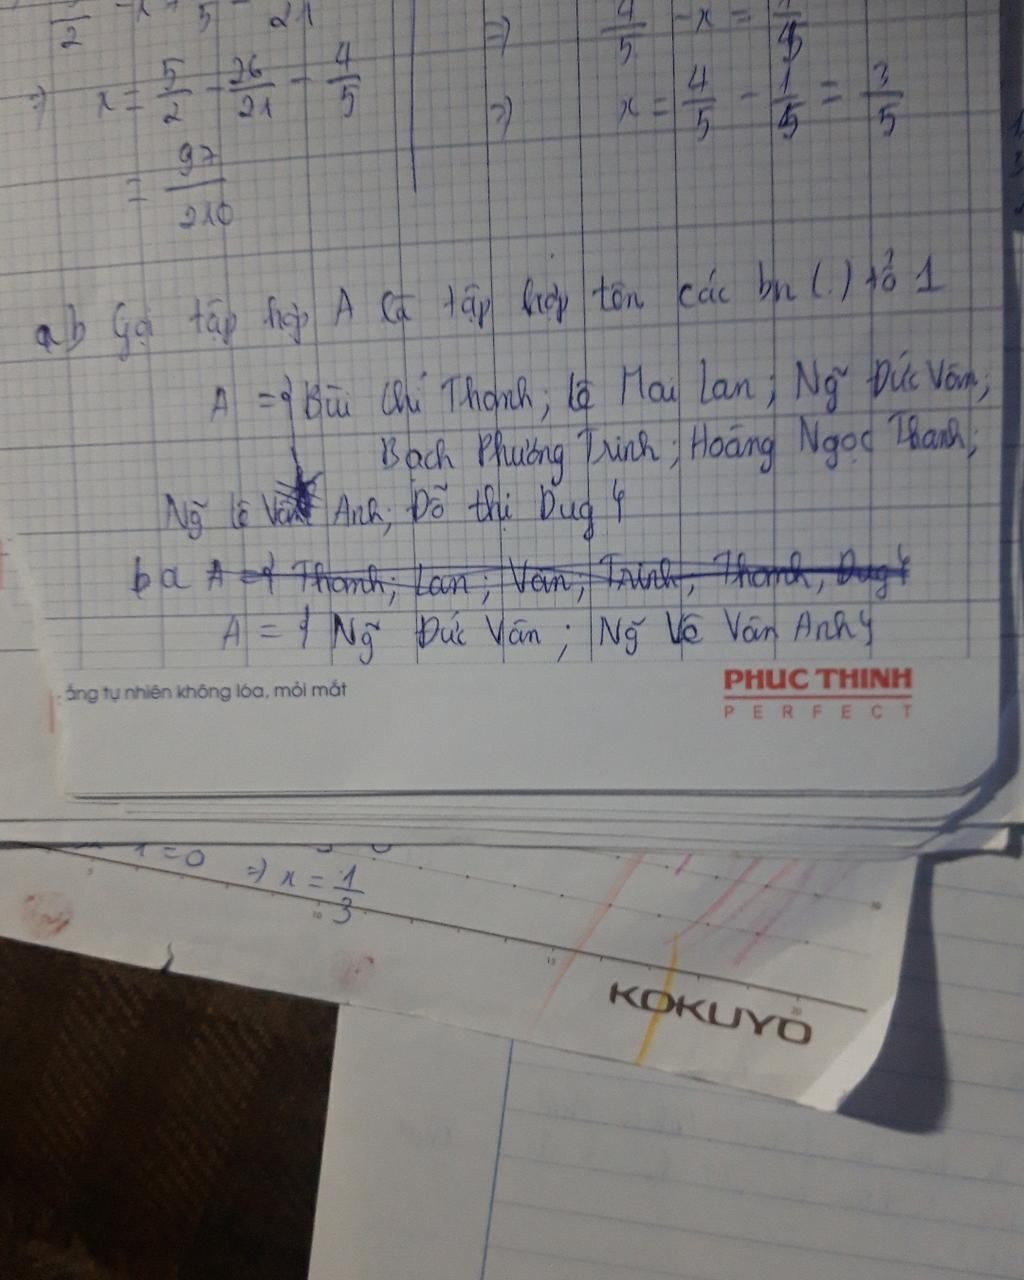 ⇒ x = 5/2 - 26/21 - 4/5
= 97/210
⇒ 4/5 - x =
⇒ x = 4/5 - 1/5 = 3/5
Gọi tập hợp A là tập hợp tên các bn (.) tổ 1
A = { Bùi Chí Thanh; Lê Mai Lan; Ng~ Đức Văn;
Bạch Phương Trinh; Hoàng Ngọc Thanh;
Ng~ Lê Vân Anh; Đỗ thị Dug }
b A = { Thanh; Lan; Văn; Trinh; Thanh, Dug }
A = { Ng~ Đức Văn; Ng~ Lê Vân Anh }
ắng tự nhiên không lóa, mỏi mắt
PHUC THINH
PERFECT
= 0 ⇒ x = 1/3
KOKUYO